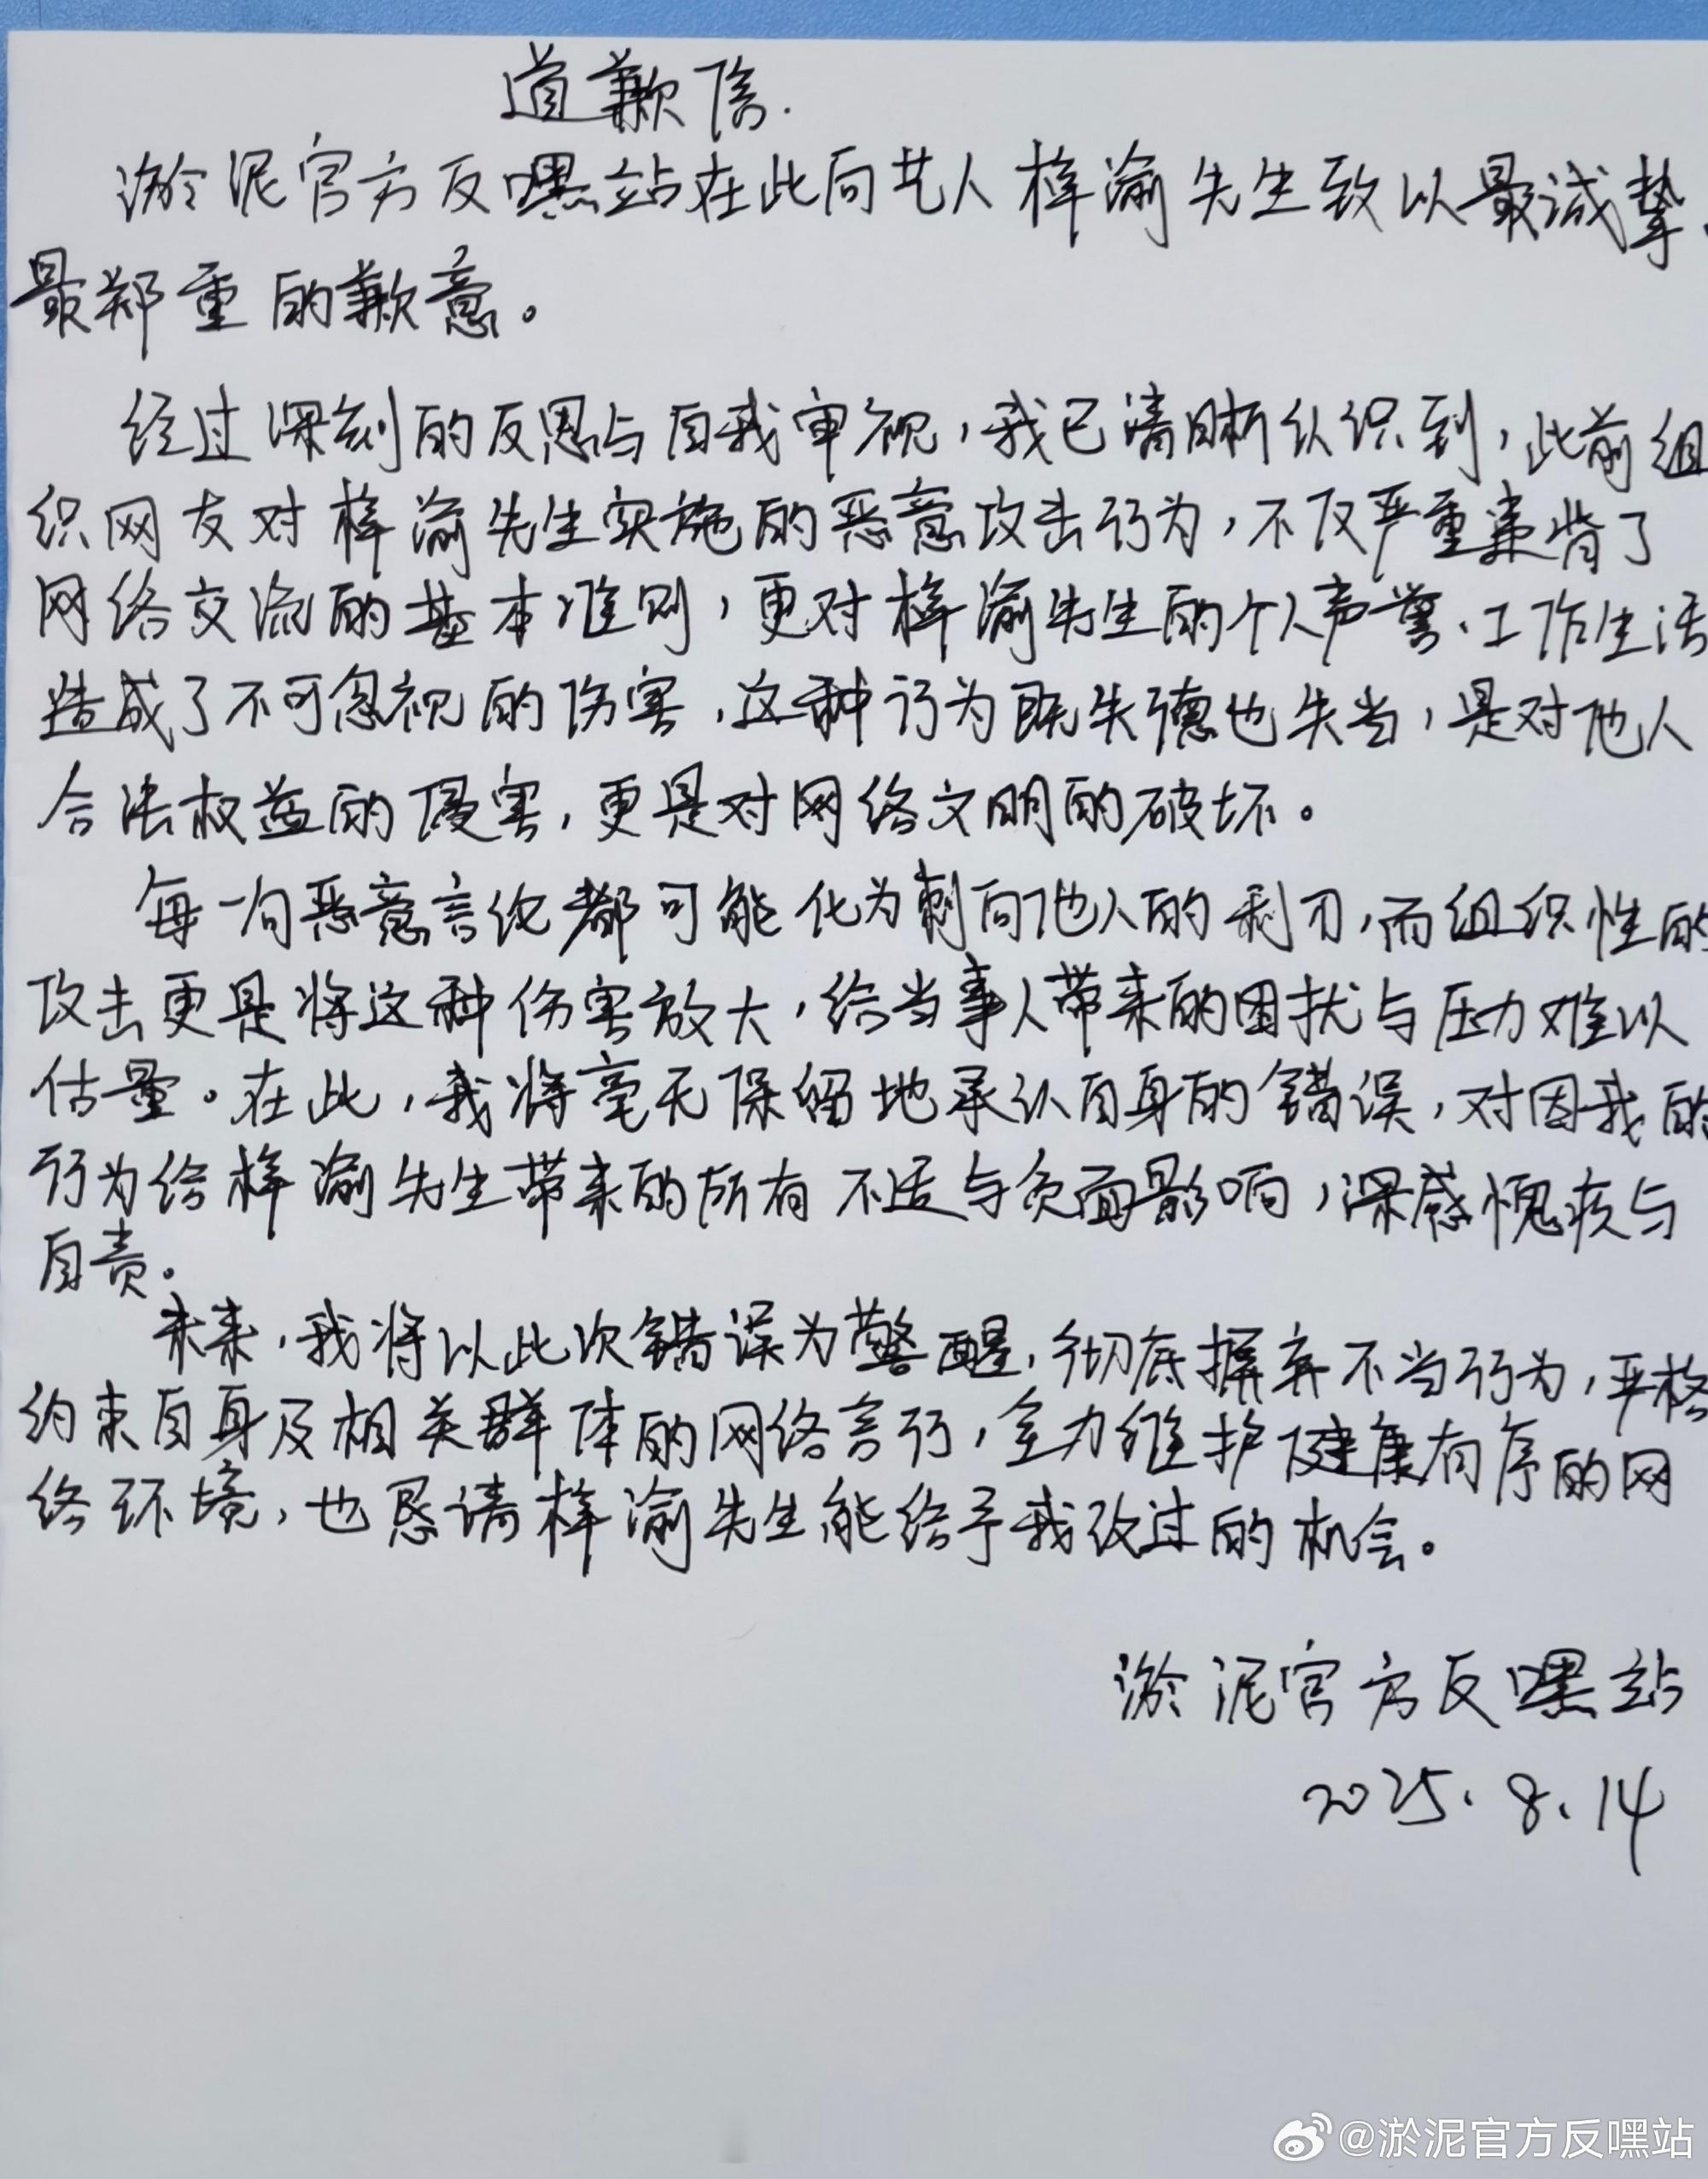 道歉信.
淤泥官方反嘿站在此向艺人梓渝先生致以最诚挚、
最郑重的歉意。
经过深刻的反思与自我审视,我已清晰认识到,此前组
织网友对梓渝先生实施的恶意攻击行为,不仅严重违背了
网络交流的基本准则,更对梓渝先生的个人声誉、工作生活
造成了不可忽视的伤害,这种行为既失德也失当,是对他人
合法权益的侵害,更是对网络文明的破坏。
每一句恶意言论都可能化为刺向他人的利刃,而组织性的
攻击更是将这种伤害放大,给当事人带来的困扰与压力难以
估量。在此,我将毫无保留地承认自身的错误,对因我的
行为给梓渝先生带来的所有不适与负面影响,深感愧疚与
自责。
未来,我将以此次错误为警醒,彻底摒弃不当行为,严格
约束自身及相关群体的网络言行,全力维护健康有序的网
络环境,也恳请梓渝先生能给予我改过的机会。
淤泥官方反嘿站
2025.8.14
@淤泥官方反嘿站